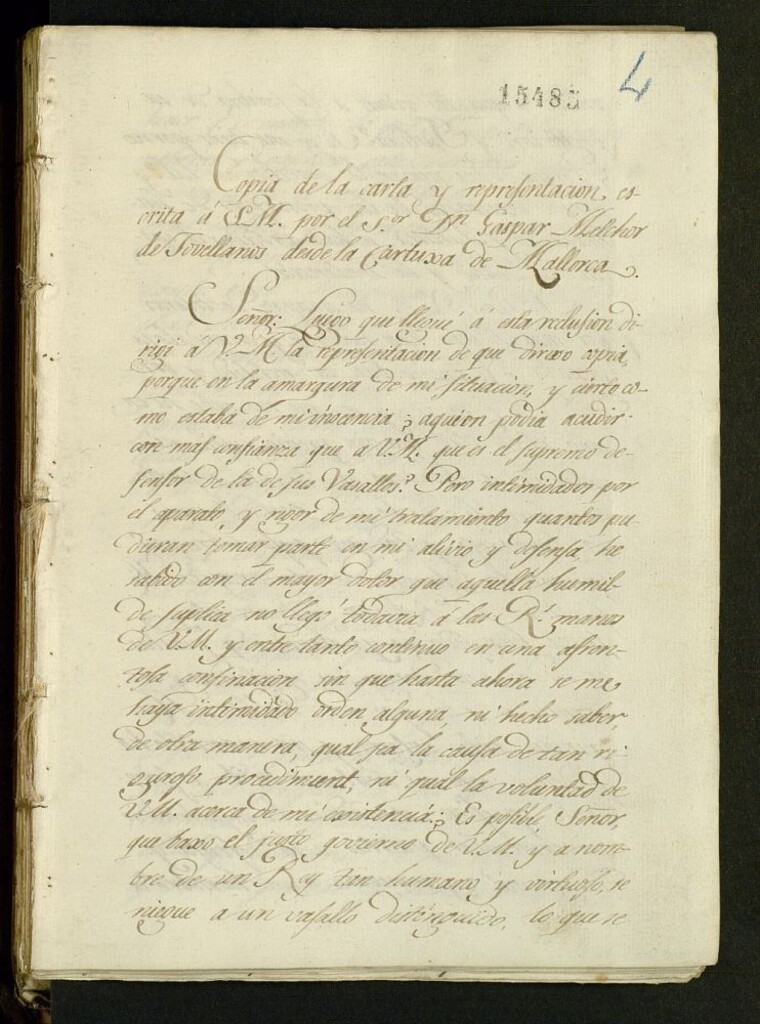 15485
4
Copia de la carta y representacion, es-
crita á S.M. por el S.or Dn Gaspar Melchor
de Jovellanos desde la Cartuxa de Mallorca.
Señor: Luego que llegué á esta reclusion di-
rigi á V.M. la representacion de que dirixo copia,
porque en la amargura de mi situacion, y cierto co-
mo estaba de mi inocencia ¿aquien podia acudir
con mas confianza que a V.M. que es el supremo de-
fensor de la de sus Vasallos? Pero intimidados por
el aparato, y rigor de mi tratamiento quantos pu-
dieran tomar parte en mi alivio y defensa, he
sabido con el mayor dolor que aquella humil-
de suplica no llegó todavia á las R.s manos
de V.M. y entre tanto continuo en una afren-
tosa confinacion sin que hasta ahora se me
haya intimidado orden alguna, ni hecho saber,
de otra manera, qual sea la causa de tan ri-
guroso procediment, ni qual la voluntad de
V.M. acerca de mi existencia; Es posible Señor,
que baxo el justo govierno de V.M. y a nom-
bre de un Rey tan humano y virtuoso, se
niegue a un vasallo distinguido, lo que se